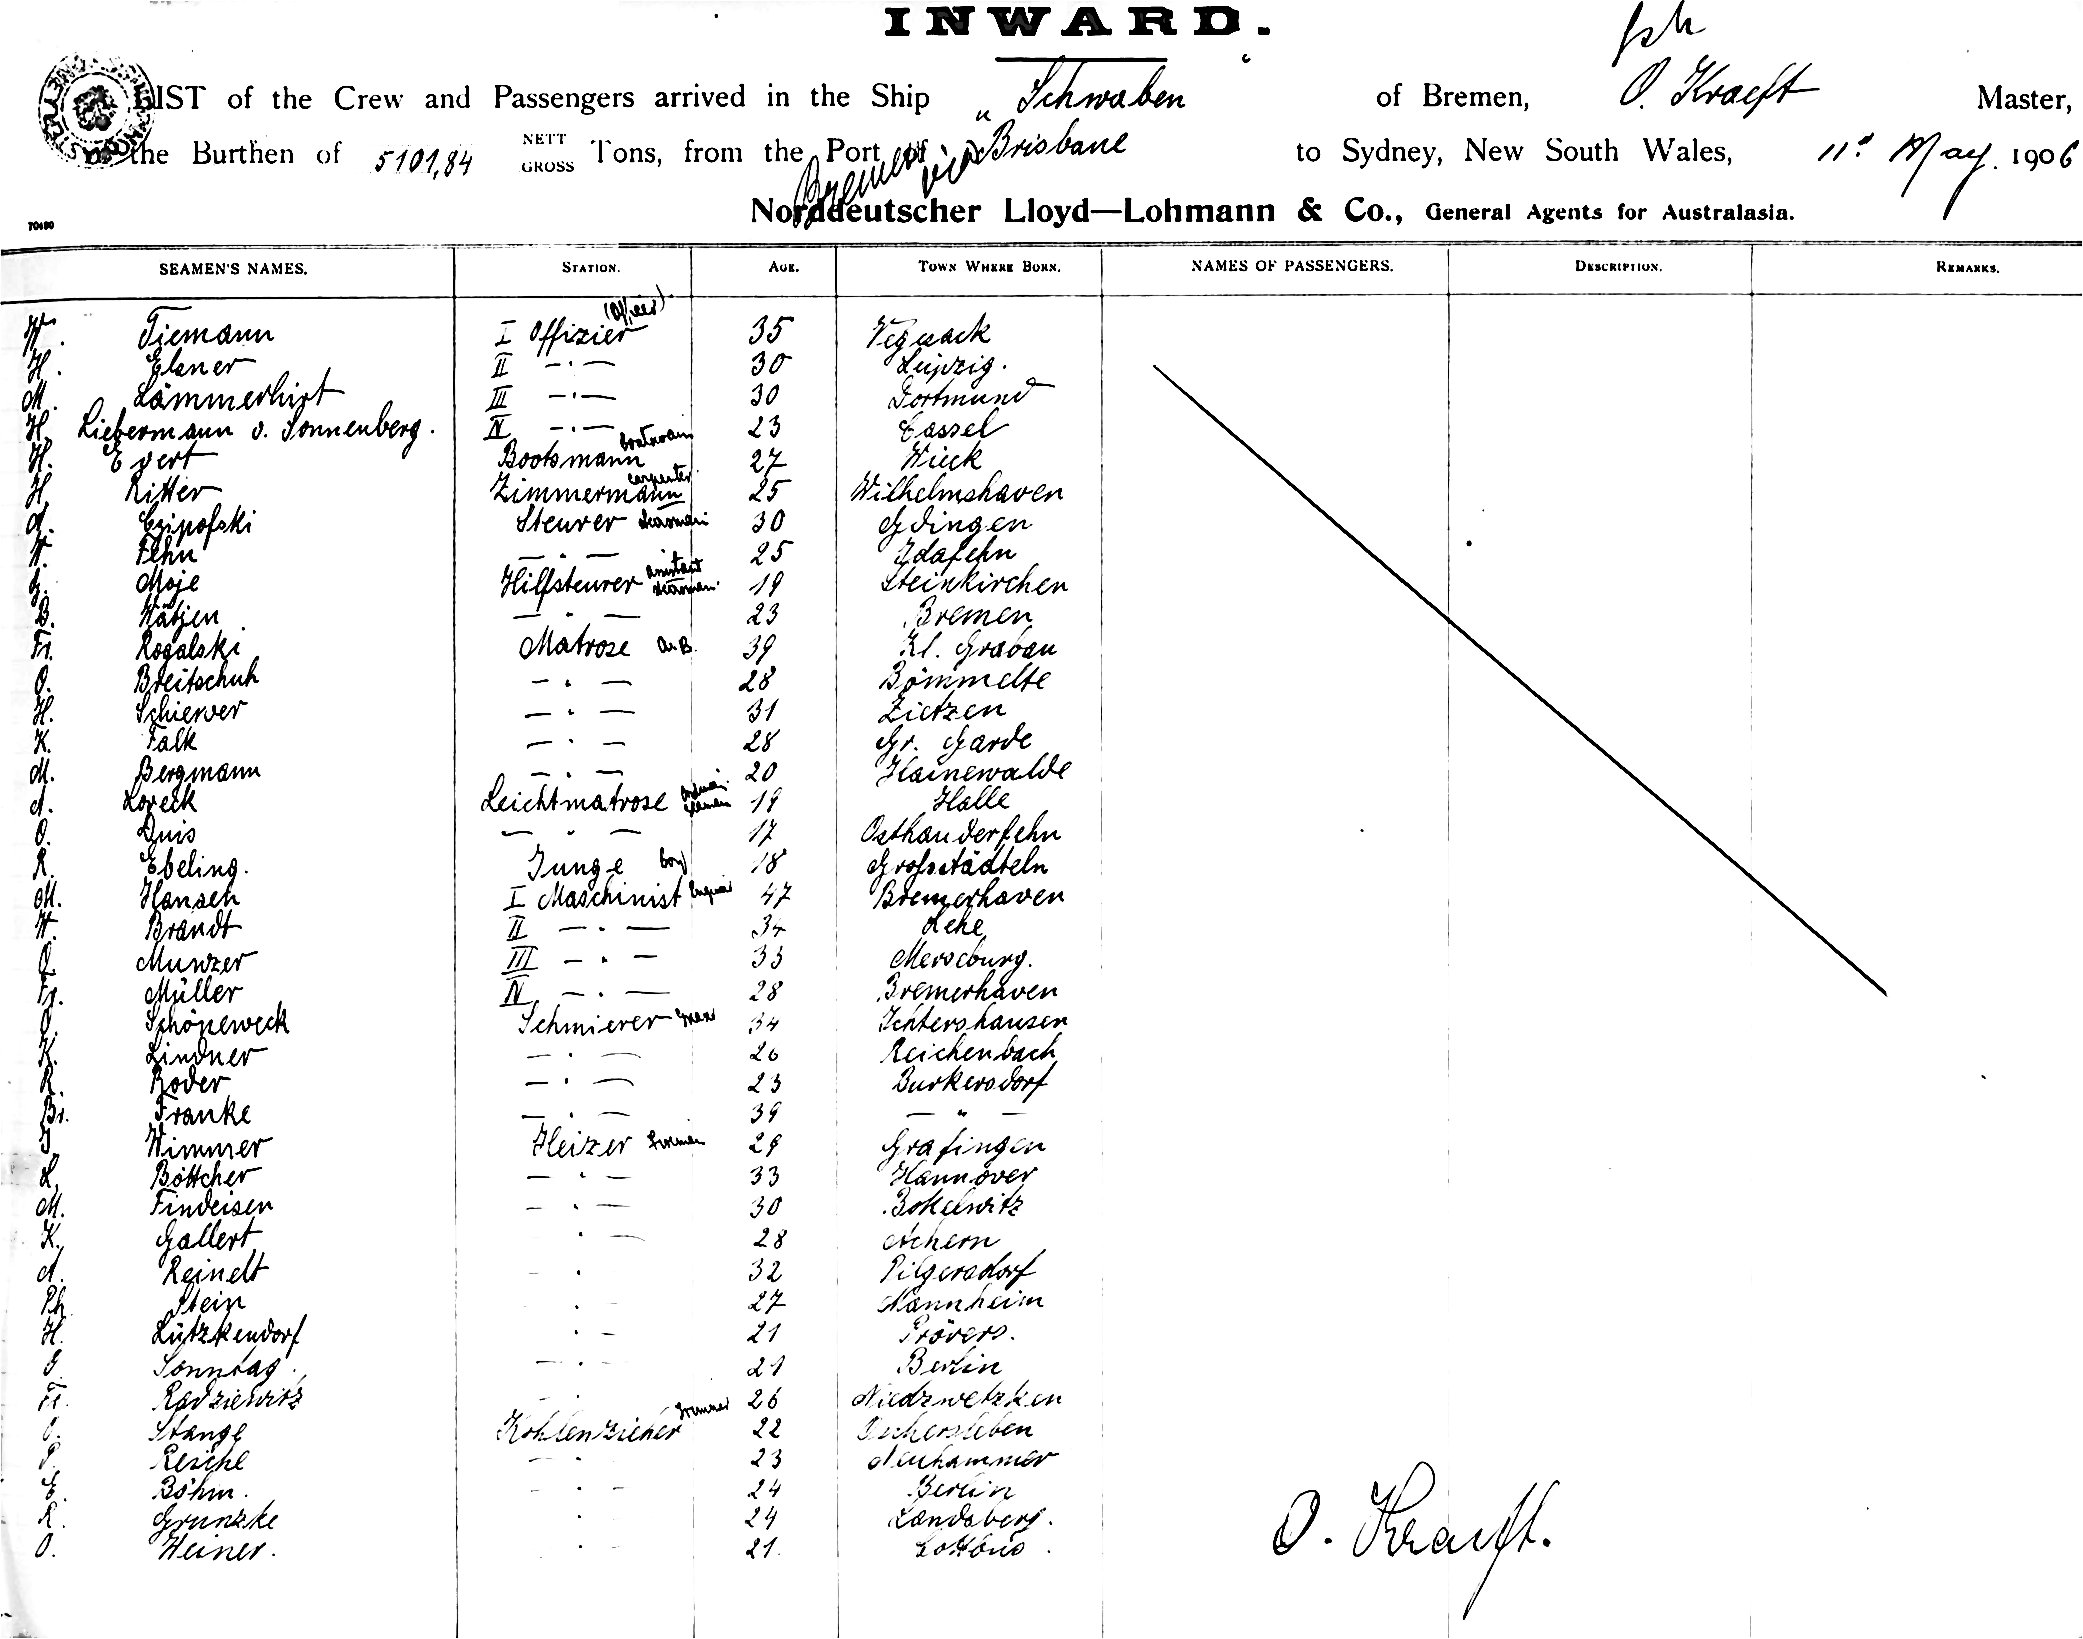 INWARD.
LIST of the Crew and Passengers arrived in the Ship „Schwaben“ of Bremen, O. Kraeft Master,
the Burthen of 5101,84 NETT GROSS Tons, from the Port of Bremen via Brisbane to Sydney, New South Wales, 11. May. 1906
Norddeutscher Lloyd—Lohmann & Co., General Agents for Australasia.
SEAMEN'S NAMES. STATION. AGE. TOWN WHERE BORN. NAMES OF PASSENGERS. DESCRIPTION. REMARKS.
W. Tiemann I Offizier (Officer) 35 Vegesack
H. Elsner II -·- 30 Leipzig.
M. Lämmerhirt III -·- 30 Dortmund
H. Liebermann v. Sonnenberg. IV -·- 23 Cassel
H. Evert Bootsmann boatswain 27 Wieck
H. Ritter Zimmermann carpenter 25 Wilhelmshaven
A. Czipofski Steurer 30 Gdingen
W. Fehn -·- 25 Idafehn
Moje Hilfsteurer assistant 19 Steinkirchen
B. Wätjen -"- 23 Bremen
Fr. Rogalski Matrose A.B. 39 Kl. Grabau
O. Breitschuh -·- 28 Bömmelte
H. Schierver -·- 31 Zietzen
K. Falk -·- 28 Gr. Garde
M. Bergmann -·- 20 Hainewalde
A. Loreck Leichtmatrose 19 Halle
O. Duis -"- 17 Osthauderfehn
R. Ebeling. Junge boy 18 Grossstädteln
M. Hansen I Maschinist Engineer 47 Bremerhaven
W. Brandt II -·- 34 Lehe
O. Munzer III -·- 33 Merseburg.
Fr. Müller IV -·- 28 Bremerhaven
O. Schöneweck Schmierer 34 Ichtershausen
K. Lindner -·- 26 Reichenbach
R. Roder -·- 23 Burkersdorf
Br. Franke -·- 39 -"-
J. Wimmer Heizer Fireman 29 Grafingen
L. Böttcher -·- 33 Hannover
M. Findeisen -·- 30 Bokelwitz
K. Gallert ·- 28 Achern
A. Reinelt -· 32 Pilgersdorf
Ph. Stein · 27 Mannheim
H. Lützkendorf ·- 21 Prövers.
G. Sonntag. -·- 21 Berlin
Fr. Radziewitz -· 26 Niedzwetzken
O. Stange Kohlenzieher Trimmer 22 Oschersleben
P. Reiche -· 23 Neuhammer
E. Böhm. -·- 24 Berlin
R. Grunzke · 24 Landsberg.
O. Weiner. · 21. Cottbus.
O. Kraeft.